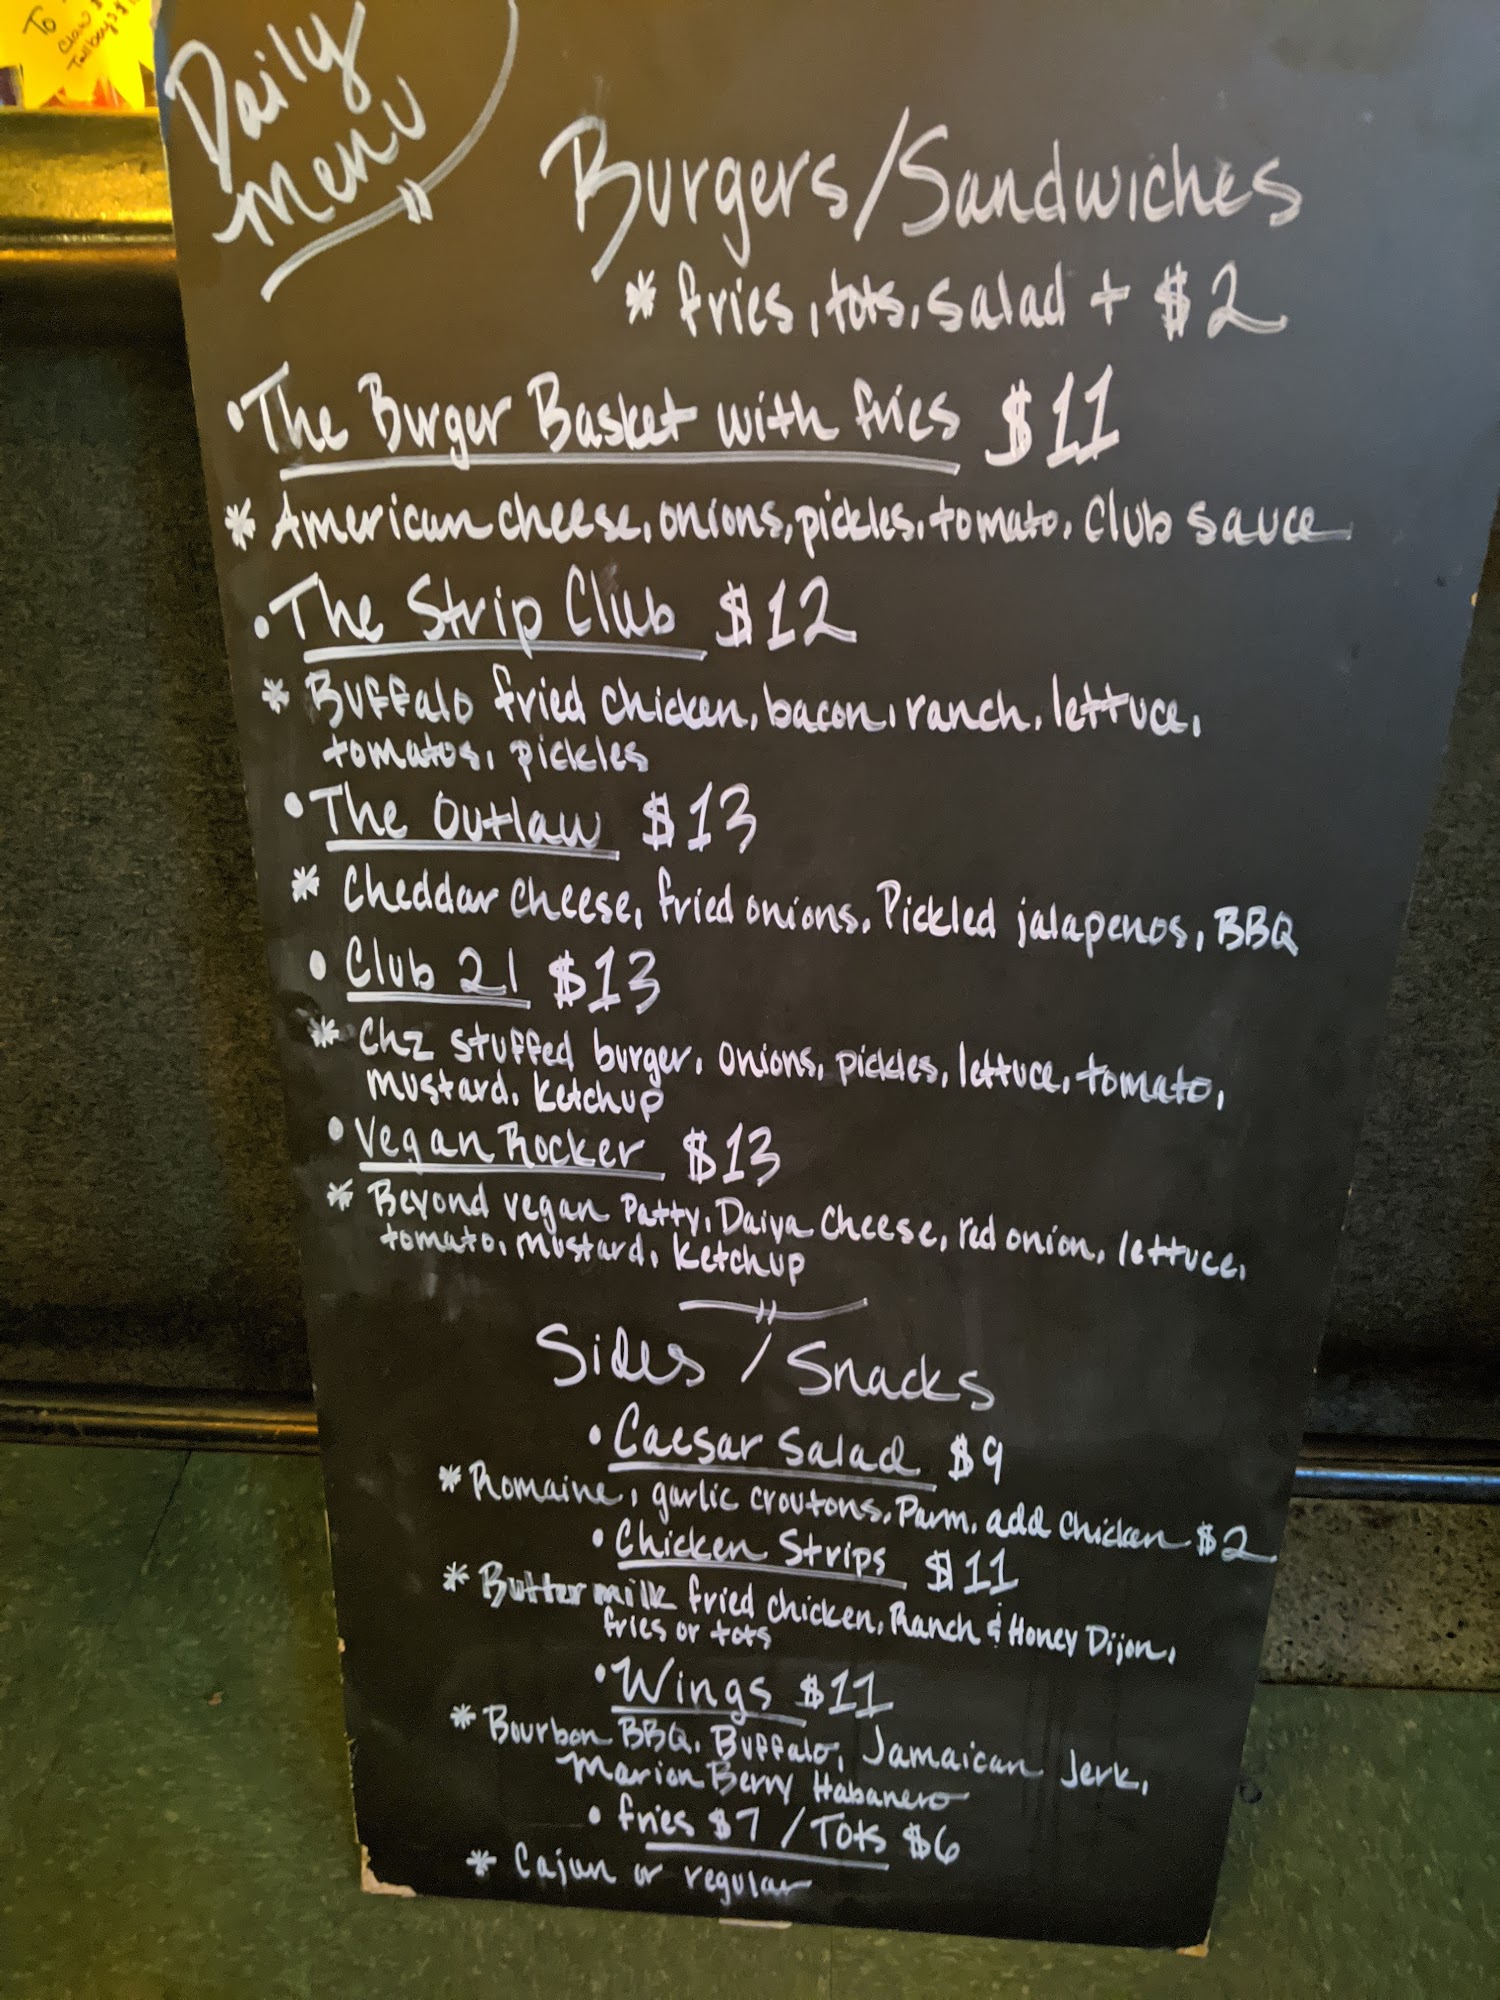 To
Daily
Menu
Burgers/Sandwiches
* fries, tots, salad + $2
• The Burger Basket with fries $11
* American cheese, onions, pickles, tomato, Club sauce
• The Strip Club $12
* Buffalo fried chicken, bacon, ranch, lettuce,
tomatos, pickles
• The Outlaw $13
* Cheddar cheese, fried onions, Pickled jalapenos, BBQ
• Club 21 $13
* Chz stuffed burger, onions, pickles, lettuce, tomato,
mustard, ketchup
• Vegan Rocker $13
* Beyond vegan Patty, Daiya Cheese, red onion, lettuce,
tomato, mustard, ketchup
Sides / Snacks
• Caesar Salad $9
* Romaine, garlic croutons, Parm, add chicken $2
• Chicken Strips $11
* Buttermilk fried chicken, Ranch & Honey Dijon,
fries or tots
• Wings $11
* Bourbon BBQ, Buffalo, Jamaican Jerk,
Marion Berry Habanero
• fries $7 / Tots $6
* Cajun or regular